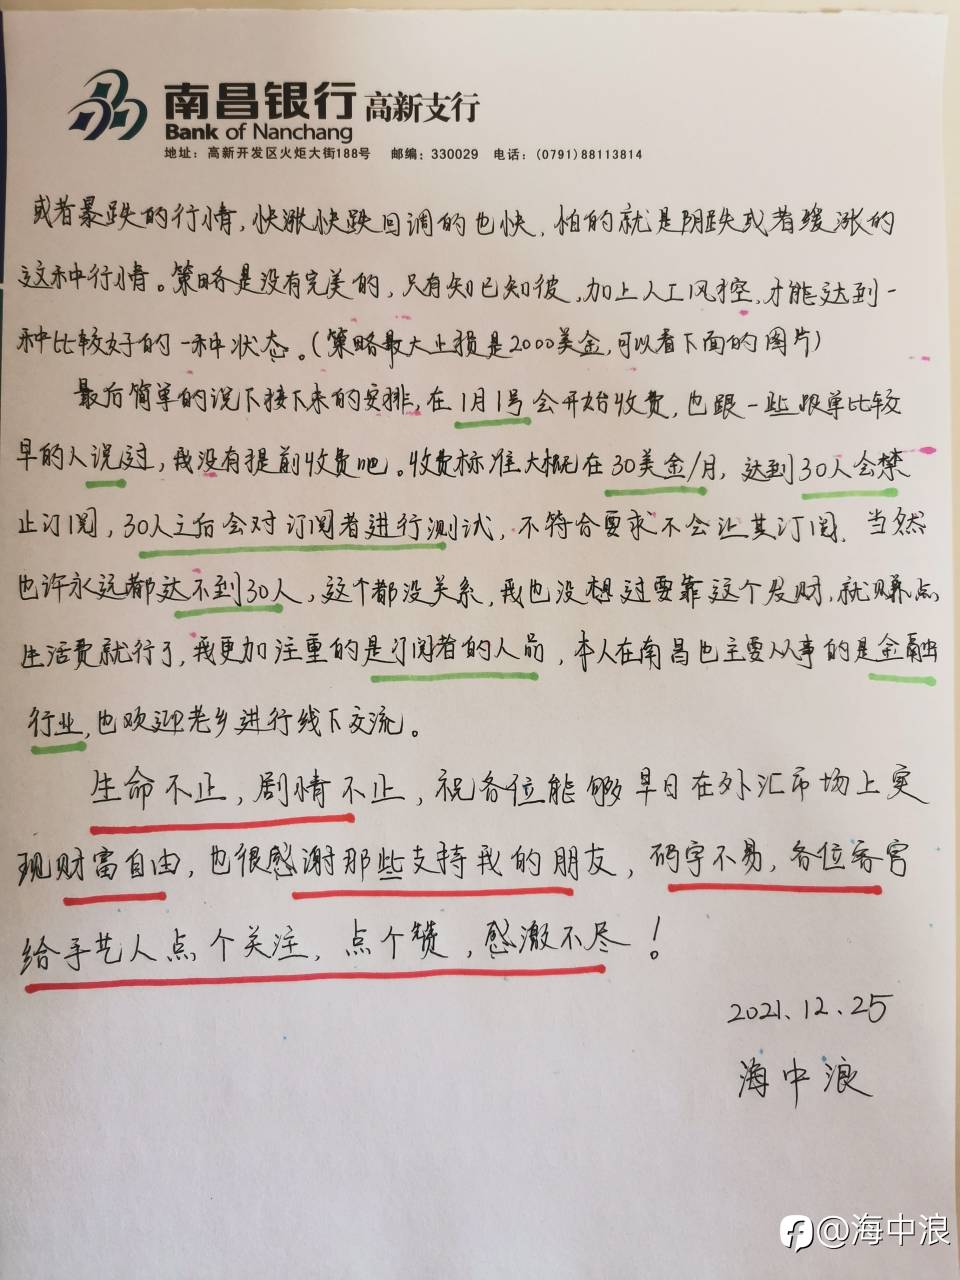 南昌银行 高新支行
Bank of Nanchang
地址：高新开发区火炬大街188号 邮编：330029 电话：(0791)88113814
或者暴跌的行情，快涨快跌回调的也快，怕的就是阴跌或者缓涨的
这种行情。策略是没有完美的，只有知已知彼，加上人工风控，才能达到一
种比较好的一种状态。（策略最大止损是2000美金，可以看下面的图片）
最后简单的说下接下来的安排，在1月1号会开始收费，也跟一些跟单比较
早的人说过，我没有提前收费吧。收费标准大概在30美金/月，达到30人会禁
止订阅，30人之后会对订阅者进行测试，不符合要求不会让其订阅。当然
也许永远都达不到30人，这个都没关系，我也没想过要靠这个发财，就赚点
生活费就行了，我更加注重的是订阅者的人品，本人在南昌也主要从事的是金融
行业，也欢迎老乡进行线下交流。
生命不止，剧情不止，祝各位能够早日在外汇市场上实
现财富自由，也很感谢那些支持我的朋友，码字不易，各位客官
给手艺人点个关注，点个赞，感激不尽！
2021.12.25
海中浪
@海中浪